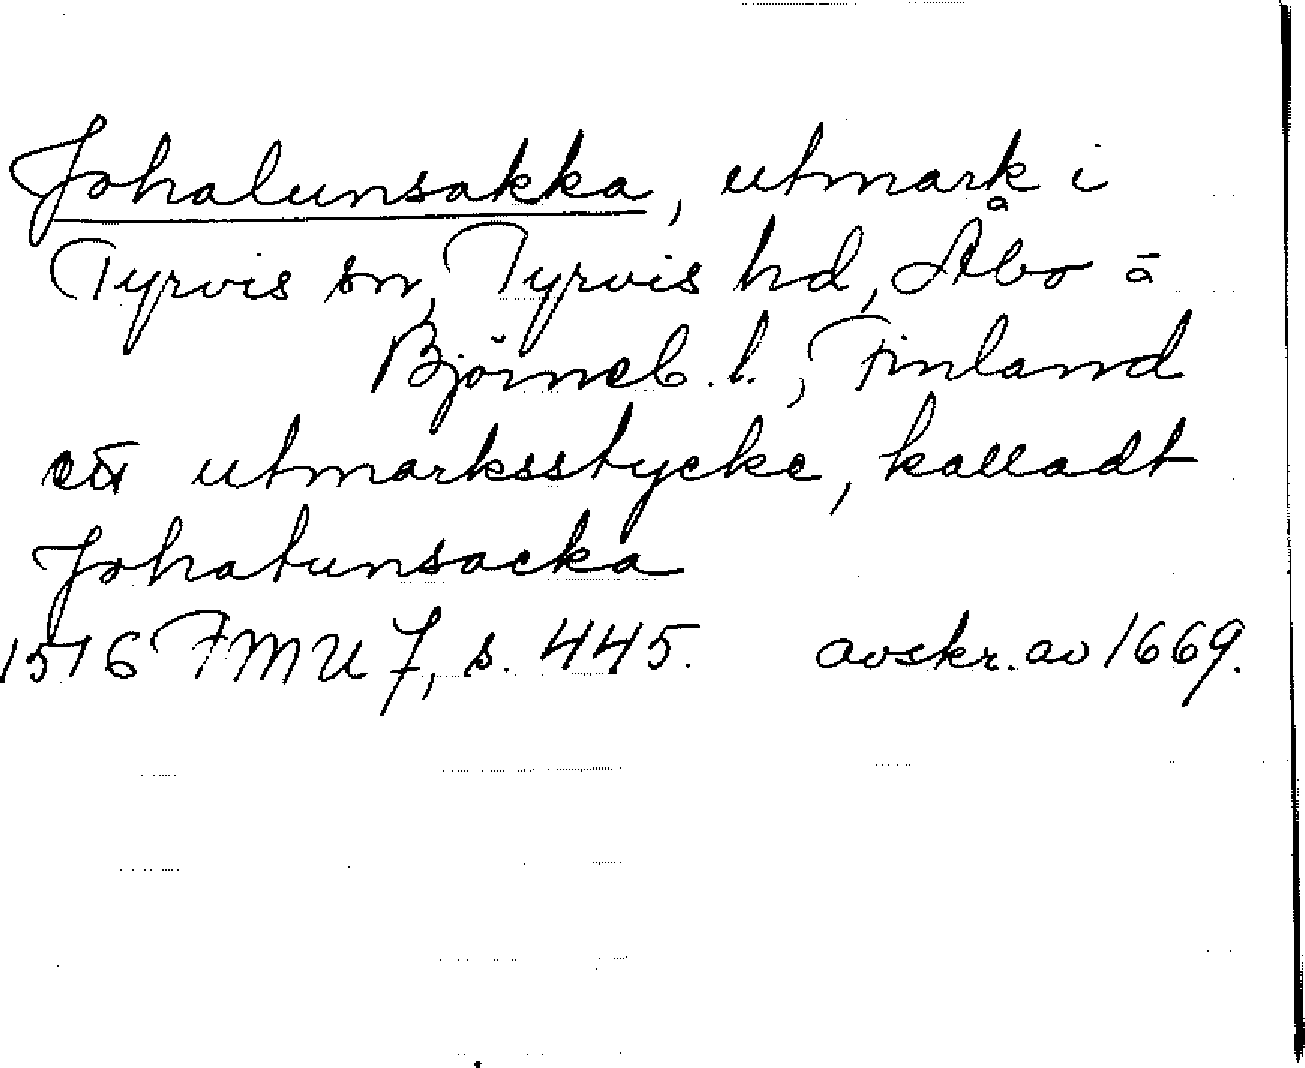 Johalunsakka, utmark i
Tyrvis sn, Tyrvis hd, Åbo -
Björneb. l., Finland
ett utmarksstycke, kalladt
Johatunsacka
1516 FMU 7, s. 445. avskr. av 1669.